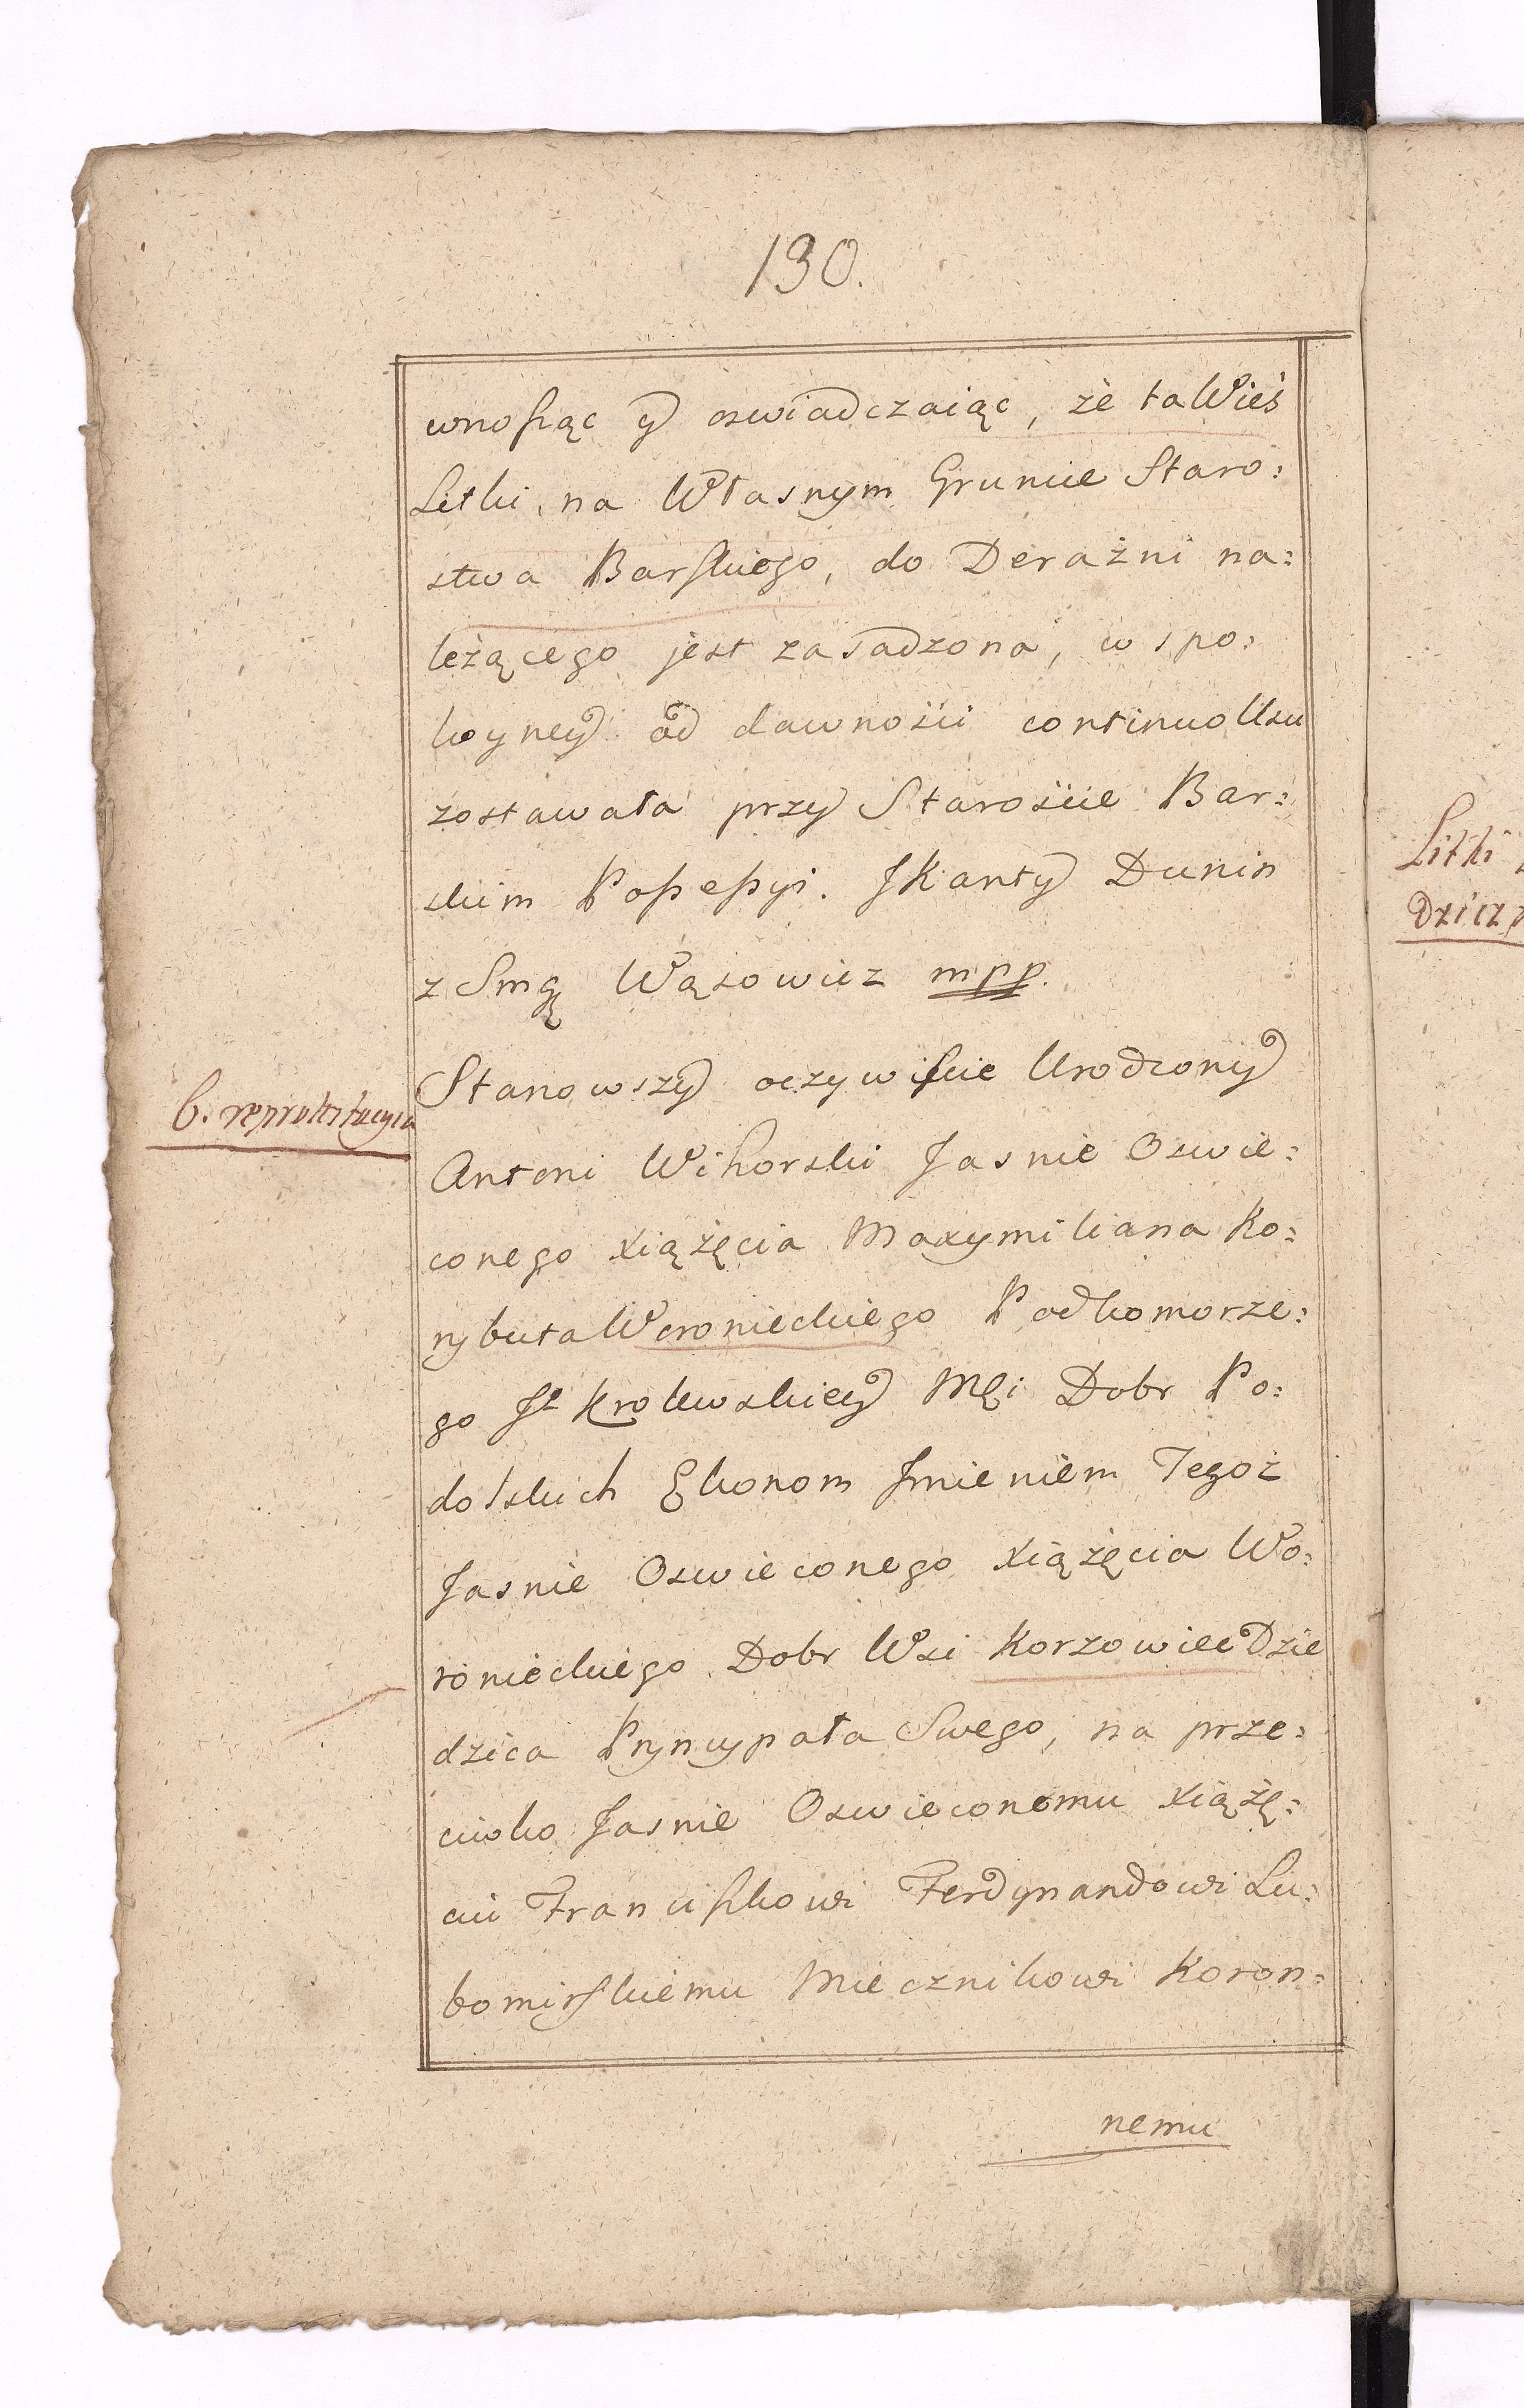 130.
wnosząc y oswiadczaiąc, że ta Wieś
Letki, na Własnym Gruncie Staro:
stwa Barskiego, do Derażni na:
leżącego jest zasadzona, w spo:
koyney od dawności continuo Usu
zostawała przy Starośćie Bar:
skim Possessyi. JKanty Dunin
z Smg Wąsowicz mpp.
Stanowszy oczywiście Urodzony
Antoni Wihorski Jasnie Oswie:
conego Xiążęcia Maxymiliana Ko:
rybuta Woronieckiego Podkomorze:
go Jº Krolewskiey Mći Dobr Po:
dolskich Ekonom Jmieniem Tegoż
Jasnie Oswieconego Xiążęcia Wo:
ronieckiego Dobr Wsi Korzowiec Dzie
dzica Pryncypała Swego, na prze:
ciwko Jasnie Oswieconemu Xiążę:
ciu Franciszkowi Ferdynandowi Lu:
bomirskiemu Miecznikowi Koron:
nemu
Litki